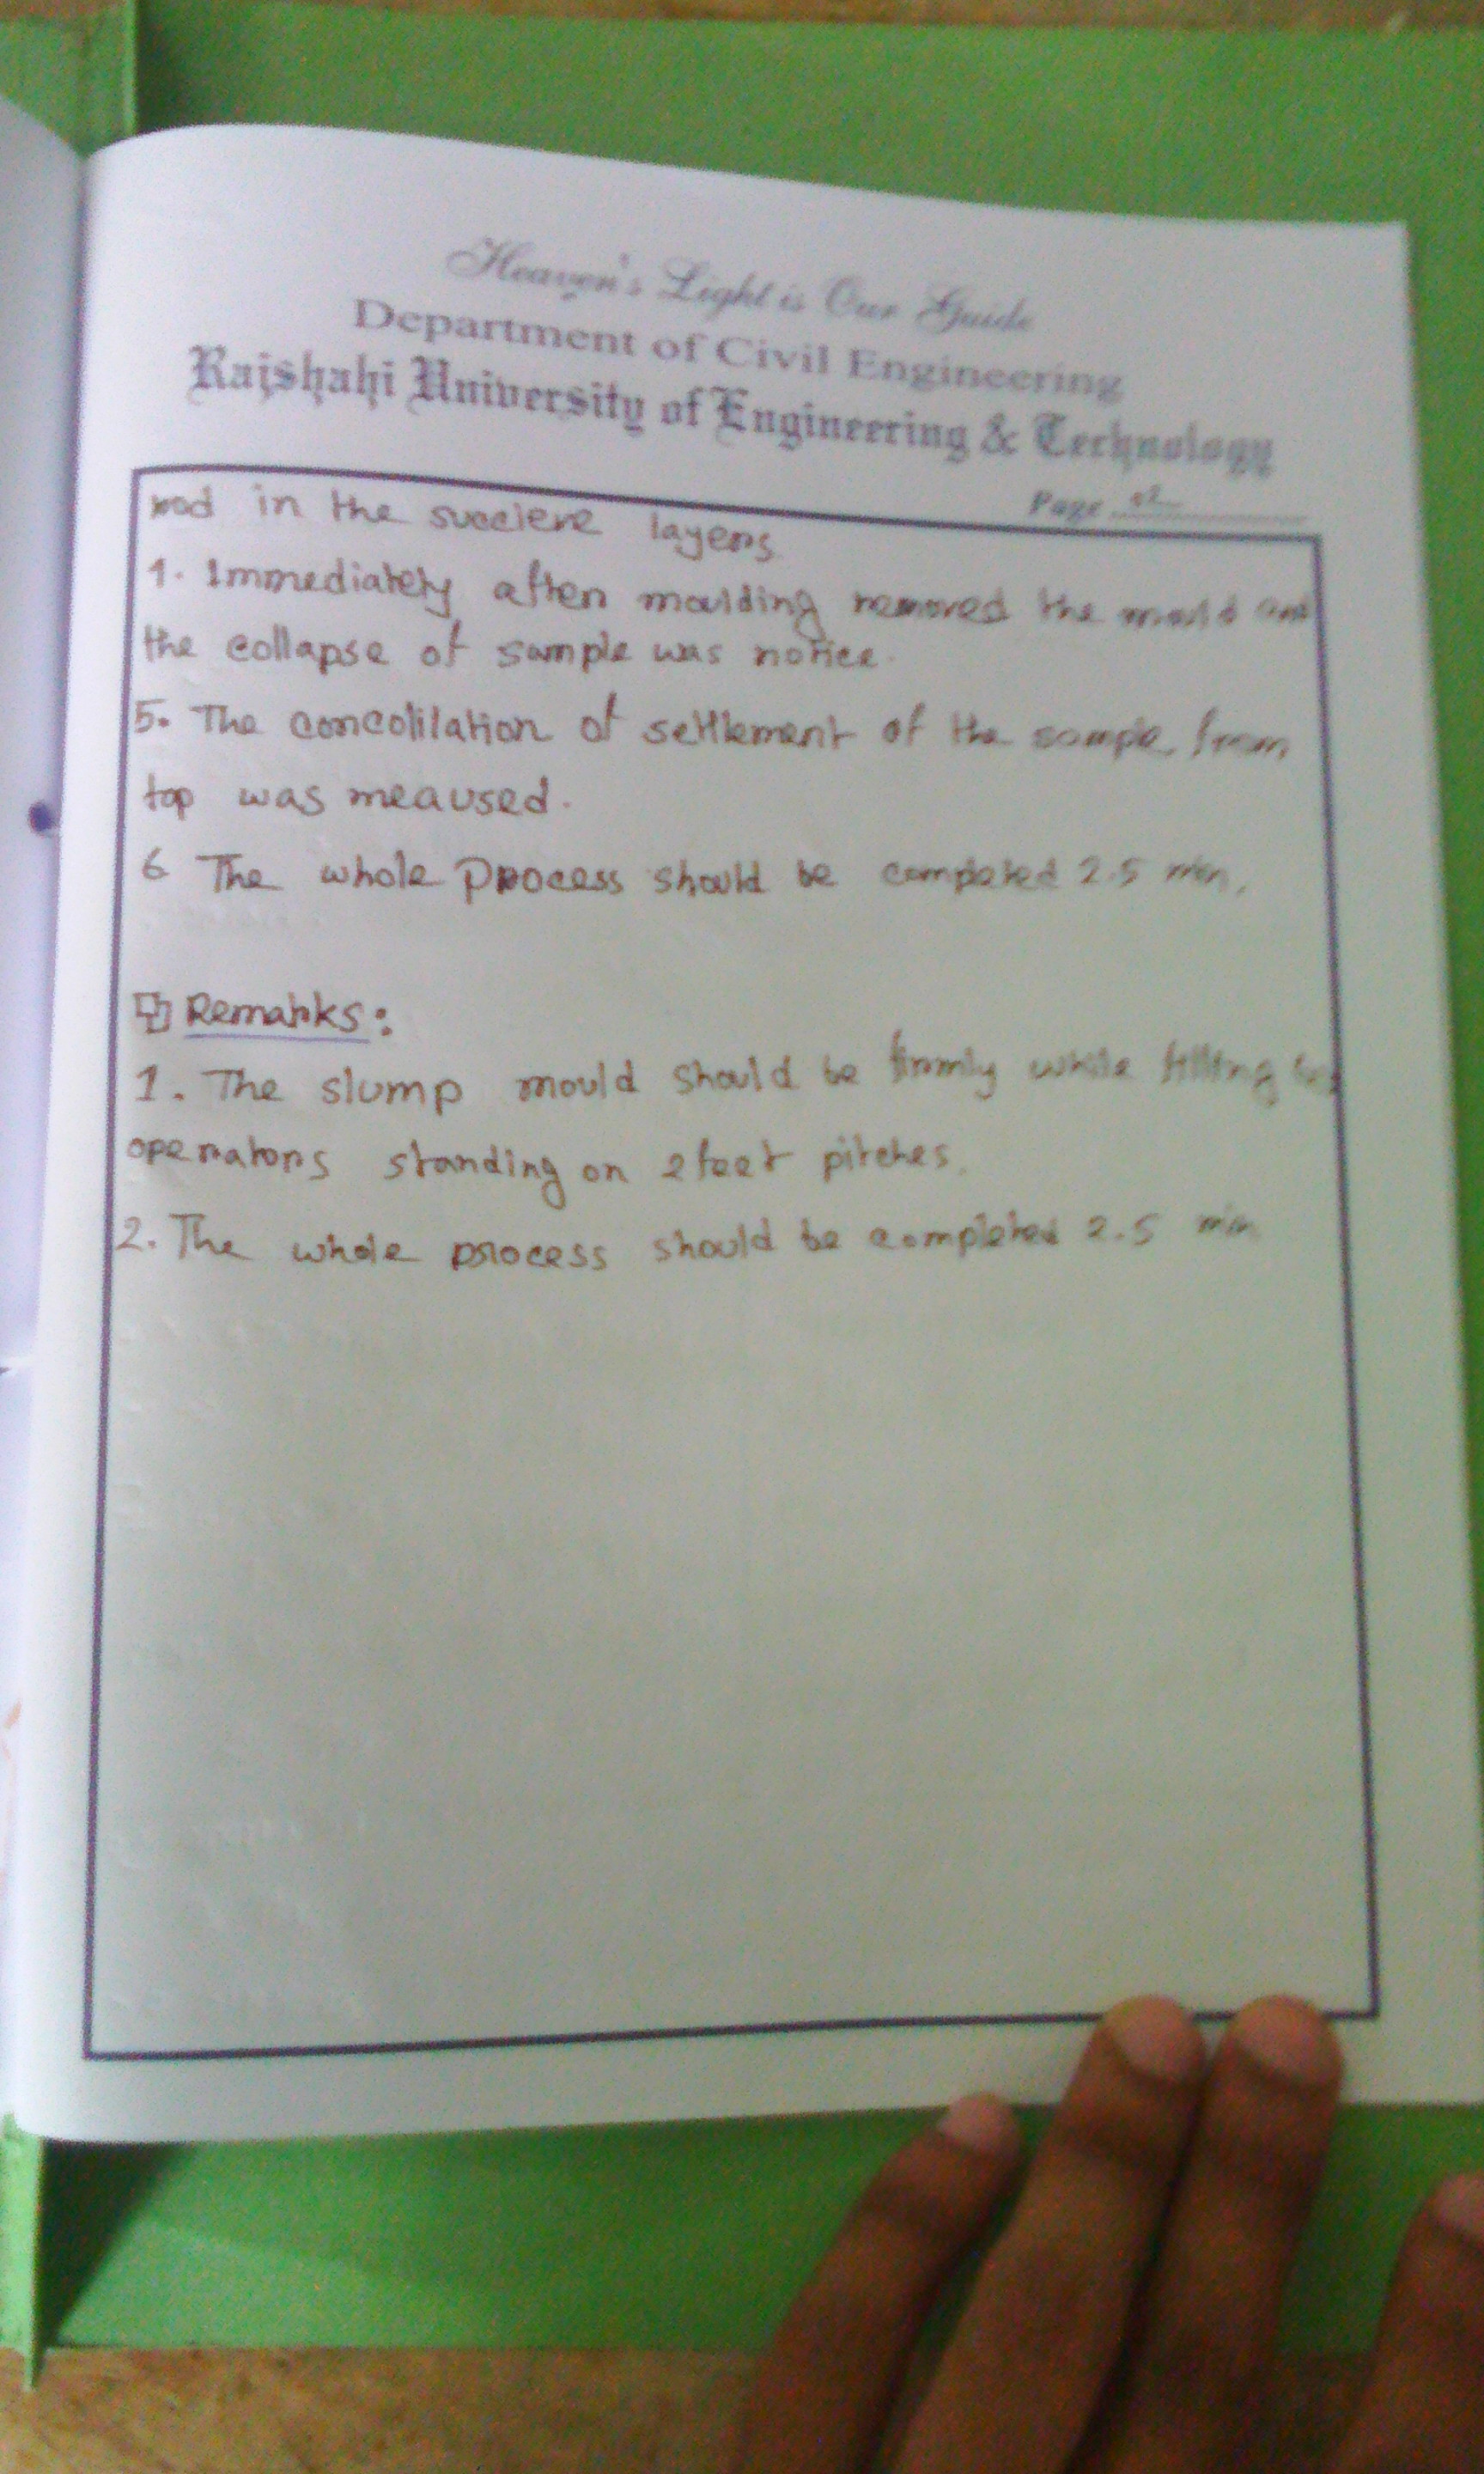 Heaven's Light is Our Guide
Department of Civil Engineering
Rajshahi University of Engineering & Technology
Page 02
rod in the succiere layers
4. Immediately after moulding removed the mould and
the collapse of sample was notice.
5. The concolilation of settlement of the sample from
top was meaused.
6 The whole process should be completed 2.5 min.
Remarks:
1. The slump mould should be firmly while filling by
operators standing on 2 feet pitches.
2. The whole process should be completed 2.5 min